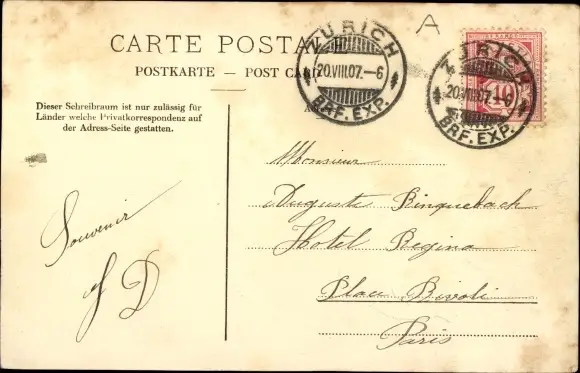 A
CARTE POSTA
POSTKARTE — POST CAR
ZÜRICH
20.VIII.07.–6
BRF. EXP.
ZÜRICH
20.VIII.07.–6
BRF. EXP.
10
Dieser Schreibraum ist nur zulässig für
Länder welche Privatkorrespondenz auf
der Adress-Seite gestatten.
Souvenir
D
Monsieur
Auguste Binquebach
Hotel Regina
Place Rivoli
Paris